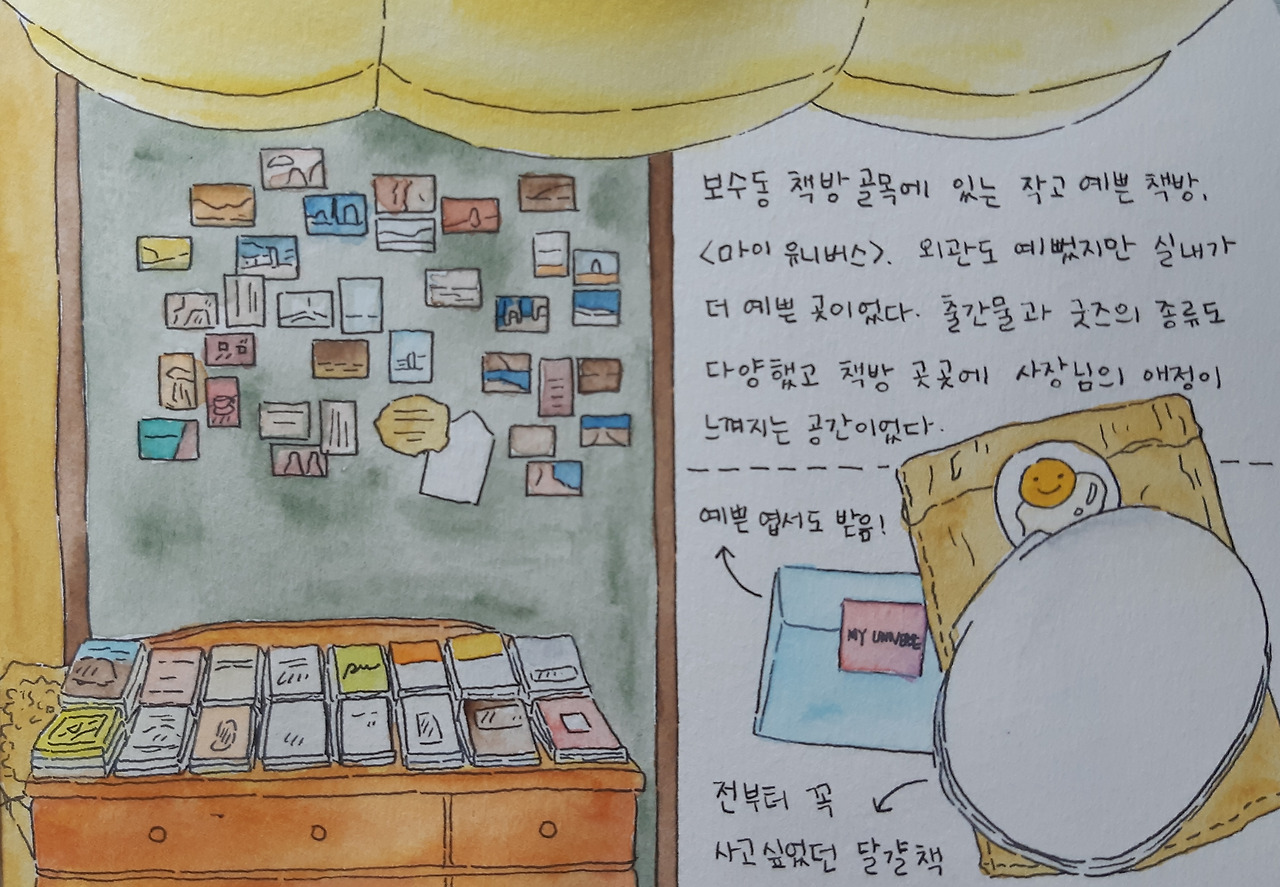 보수동 책방골목에 있는 작고 예쁜 책방,
<마이 유니버스>. 외관도 예뻤지만 실내가
더 예쁜 곳이었다. 출간물과 굿즈의 종류도
다양했고 책방 곳곳에 사장님의 애정이
느껴지는 공간이었다.
예쁜 엽서도 받음!
MY UNIVERSE
전부터 꼭
사고싶었던 달걀책